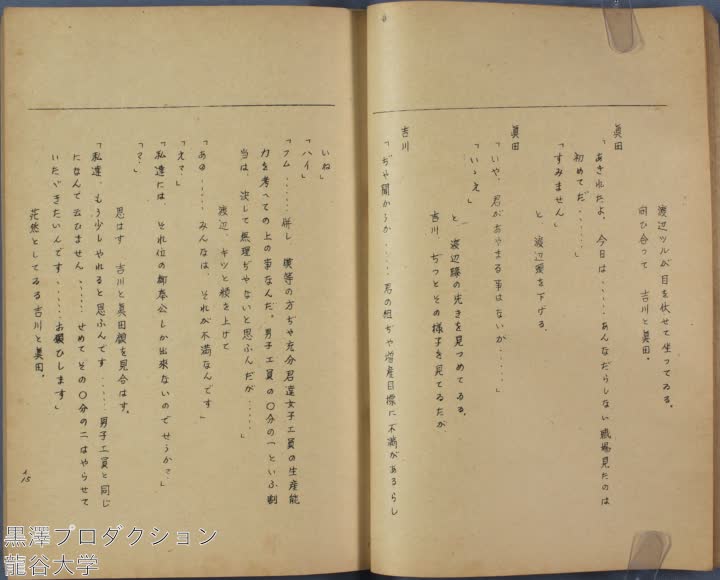 渡辺ツルが目を伏せて坐ってゐる。
向ひ合って 吉川と眞田。
眞田
「あきれたよ、今日は‥‥あんなだらしない職場見たのは
初めてだ‥‥‥」
「すみません」
と 渡辺頭を下げる。
眞田
「いや、君があやまる事はないが‥‥‥」
「いゝえ」
と 渡辺膝の先きを見つめてゐる。
吉川 ぢっとその様子を見てゐたが
吉川
「ぢゃ聞かうか‥‥君の組ぢゃ増産目標に不満があるらし
いね」
「ハイ」
「フム‥‥‥併し 僕等の方ぢゃ充分君達女子工員の生産能
力を考へての上の事なんだ。男子工員の〇分の一といふ割
当は、決して無理ぢゃないと思ふんだが‥‥‥」
渡辺、キッと顔を上げて
「あの‥‥‥みんなは、それが不満なんです」
「えっ」
「私達には、それ位の御奉公しか出来ないのでせうか?」
「?」
思はず 吉川と眞田顔を見合はす。
「私達、もう少しやれると思ふんです‥‥‥男子工員と同じ
になんて云ひません‥‥‥せめてその〇分の二はやらせて
いたゞきたいんです‥‥‥お願ひします」
茫然としてゐる吉川と眞田。
黒澤プロダクション
龍谷大学